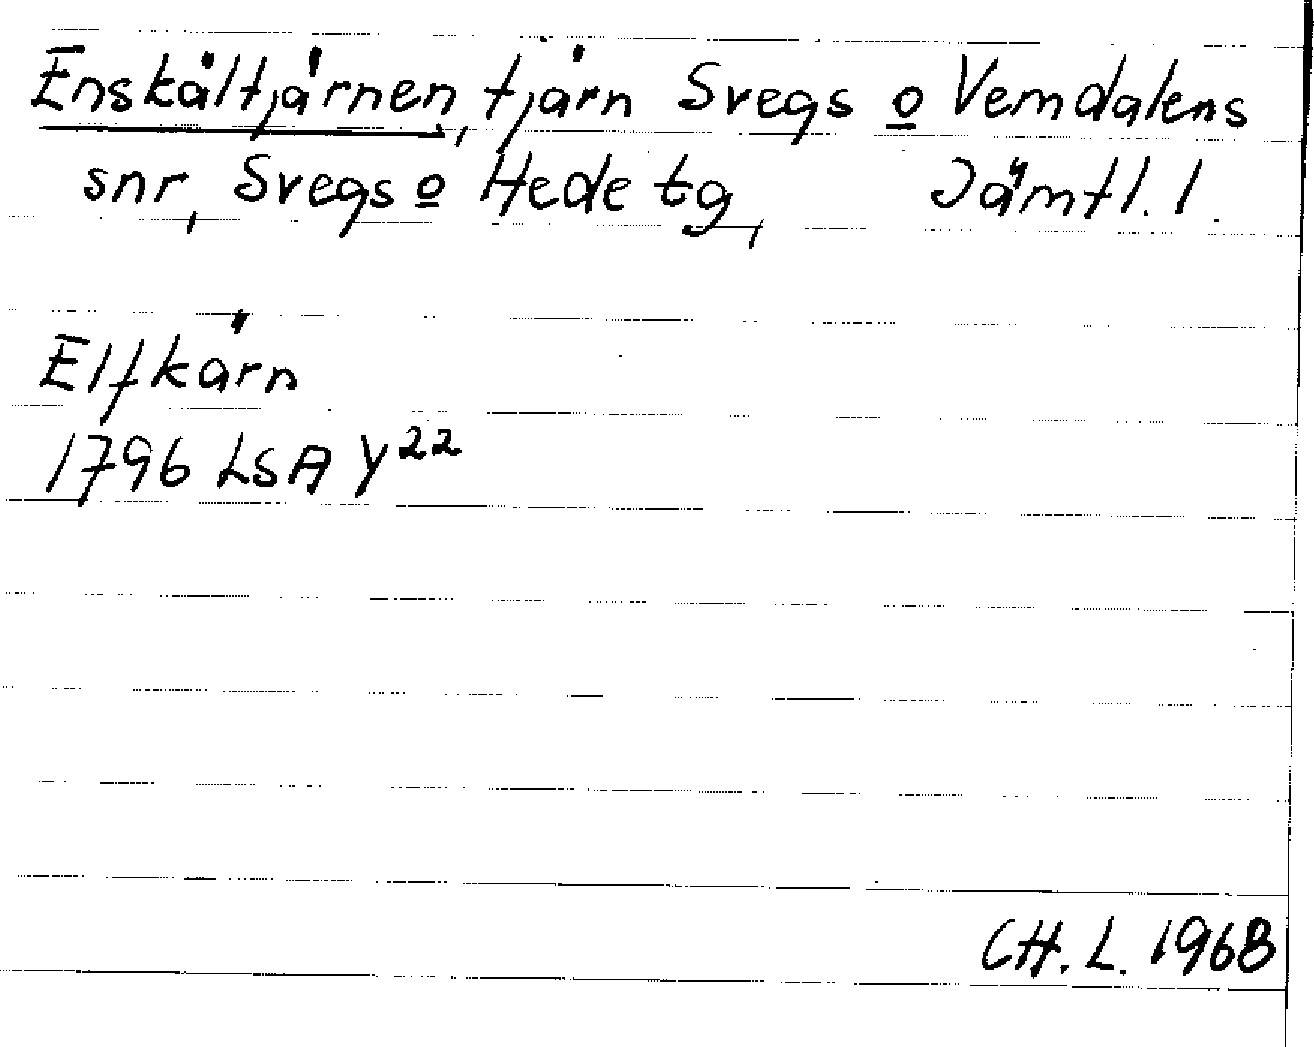 Enskältjärnen, tjärn Svegs o Vemdalens
snr, Svegs o Hede tg, Jämtl. l.
Elfkärn
1796 LSA Y22
CH. L. 1968